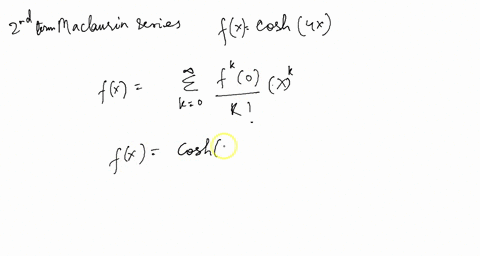 2nd term Maclaurin series f(x)= cosh (4x)
f(x) = ∞ Σ k=0 f^k(0) / k! (x)^k
f(x) = cosh(